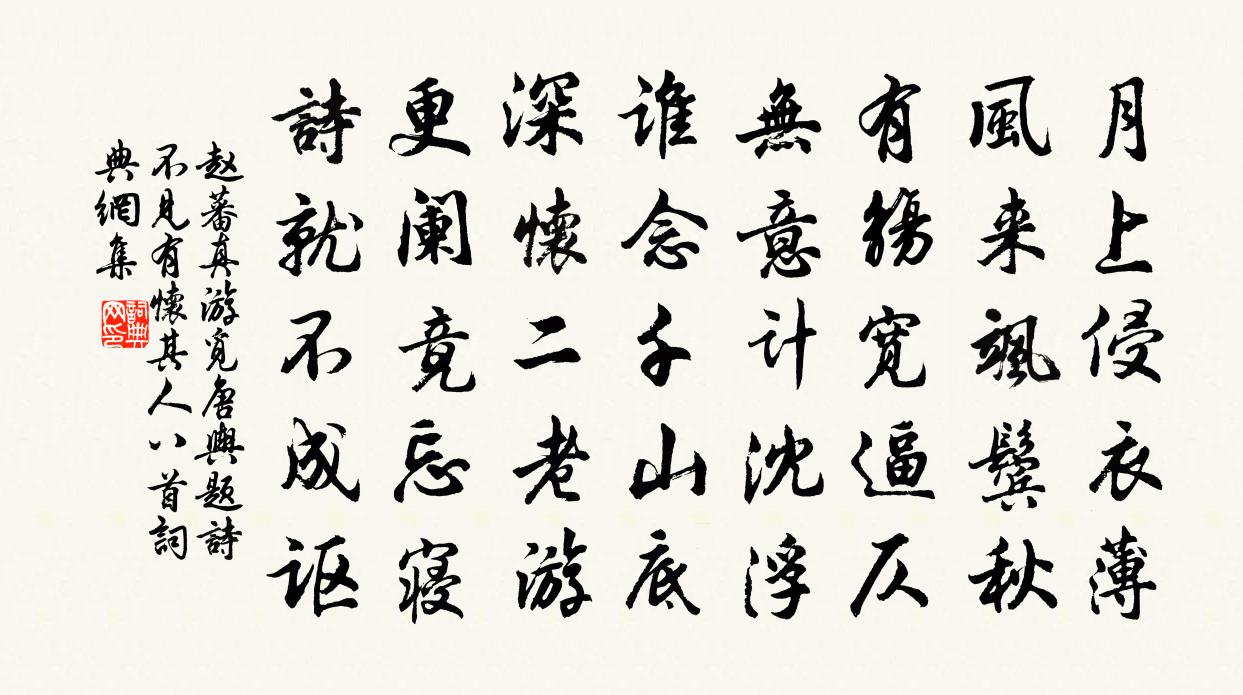 月上侵衣薄
風来颯鬓秋
有觴寬逼仄
無意计沈浮
谁念千山底
深懷二老游
更阑竟忘寢
詩就不成讴
赵蕃真游覓唐興題詩
不見有懷其人八首詞
典網集
詞典
网印